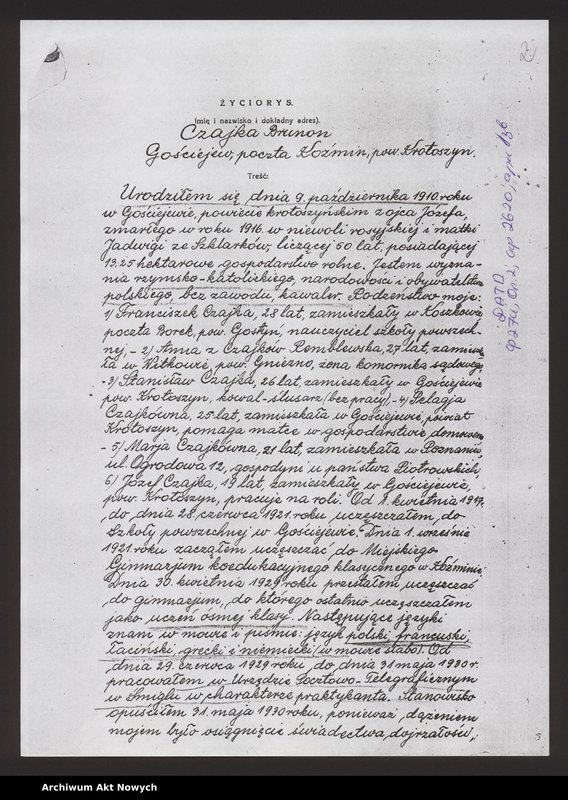 2
ŻYCIORYS.
(imię i nazwisko i dokładny adres).
Czajka Brunon
Gościejew, poczta Koźmin, pow. Krotoszyn.
Treść:
Urodziłem się dnia 9. października 1910. roku
w Gościejewie, powiecie krotoszyńskim z ojca Józefa,
zmarłego w roku 1916. w niewoli rosyjskiej i matki
Jadwigi ze Szklarków, liczącej 50 lat, posiadającej
13,25 hektarowe gospodarstwo rolne. Jestem wyzna-
nia rzymsko-katolickiego, narodowości i obywatelstwa
polskiego, bez zawodu, kawaler. Rodzeństwo moje:
1) Franciszek Czajka, 28 lat, zamieszkały w Koszkowie
poczta Borek, pow. Gostyń, nauczyciel szkoły powszech-
nej, - 2) Anna z Czajków Remblewska, 27 lat, zamieszka-
ła w Witkowie, pow. Gniezno, żona komornika sądowego
- 3) Stanisław Czajka, 26 lat, zamieszkały w Gościejewie
pow. Krotoszyn, kowal-ślusarz (bez pracy), - 4) Pelagja
Czajkówna, 25 lat, zamieszkała w Gościejewie, powiat
Krotoszyn, pomaga matce w gospodarstwie domowem
- 5) Marja Czajkówna, 21 lat, zamieszkała w Poznaniu,
ul. Ogrodowa 12, gospodyni u państwa Piotrowskich,
6) Józef Czajka, 19 lat, zamieszkały w Gościejewie,
pow. Krotoszyn, pracuje na roli. Od 1. kwietnia 1917.
do dnia 28. czerwca 1921. roku uczęszczałem do
Szkoły powszechnej w Gościejewie. Dnia 1. września
1921. roku zacząłem uczęszczać do Miejskiego
Gimnazjum koedukacyjnego klasycznego w Koźminie.
Dnia 30. kwietnia 1929 roku przestałem uczęszczać
do gimnazjum, do którego ostatnio uczęszczałem
jako uczeń ósmej klasy. Następujące języki
znam w mowie i piśmie: język polski, francuski,
łaciński, grecki i niemiecki (w mowie słabo). Od
dnia 29. czerwca 1929 roku, do dnia 31. maja 1930 r.
pracowałem w Urzędzie Pocztowo-Telegraficznym
w Śmiglu w charakterze praktykanta. Stanowisko
opuściłem 31. maja 1930 roku, ponieważ dążeniem
mojem było osiągnięcie świadectwa dojrzałości,
3
Archiwum Akt Nowych